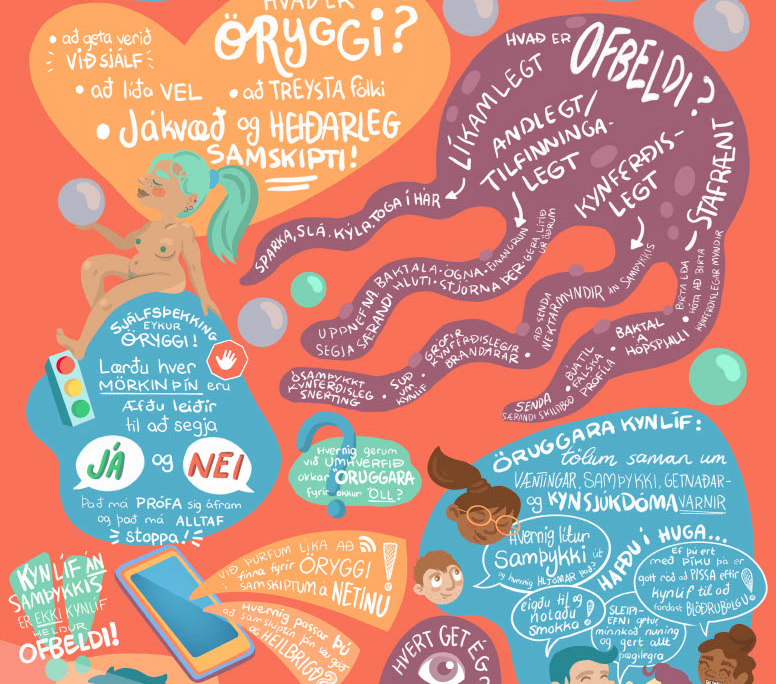 HVAÐ ER
ÖRYGGI?
• að geta verið
VIÐ SJÁLF
• að líða VEL
• að TREYSTA fólki
• Jákvæð og HEIÐARLEG
SAMSKIPTI!
HVAÐ ER
OFBELDI?
LÍKAMLEGT
SPARKA, SLÁ, KÝLA, TOGA Í HÁR
ANDLEGT/
TILFINNINGA-
LEGT
UPPNEFNA • BAKTALA • ÓGNA • EINANGRUN
SEGJA SÆRANDI HLUTI • STJÓRNA ÞÉR • GERA LÍTIÐ
ÚR ÖÐRUM
KYNFERÐIS-
LEGT
ÓSAMÞYKKT
KYNFERÐISLEG
SNERTING
• SUÐ
UM
KYNLÍF
• GRÓFIR
KYNFERÐISLEGIR
BRANDARAR
• AÐ SENDA
NEKTARMYNDIR ÁN SAMÞYKKIS
STAFRÆNT
SENDA
SÆRANDI SKILABOÐ
• BÚA TIL
FALSKA
PRÓFÍLA
• BAKTAL
Á
HÓPSPJALLI
• BIRTA EÐA
HÓTA AÐ BIRTA
KYNFERÐISLEGAR MYNDIR
SJÁLFSÞEKKING
EYKUR
ÖRYGGI!
Lærðu hver
MÖRKIN ÞÍN eru
Æfðu leiðir
til að segja
JÁ og NEI
Það má PRÓFA sig áfram
og það má ALLTAF
stoppa!
Hvernig gerum
við UMHVERFIÐ
okkar ÖRUGGARA
fyrir okkur ÖLL?
ÖRUGGARA KYNLÍF:
tölum saman um
VÆNTINGAR, SAMÞYKKI, GETNAÐAR-
og KYNSJÚKDÓMAVARNIR
Hvernig lítur
Samþykki út
og hvernig HLJÓMAR það?
HAFÐU Í HUGA...
eigðu til og
notaðu
smokka!
SLEIPI-
EFNI getur
minnkað núning
og gert allt
þægilegra
Ef þú ert
með PÍKU þá er
gott ráð að PISSA eftir
kynlíf til að
forðast BLÖÐRUBÓLGU!
KYNLÍF ÁN
SAMÞYKKIS
ER EKKI KYNLÍF
HELDUR
OFBELDI!
VIÐ ÞURFUM LÍKA AÐ
finna fyrir ÖRYGGI
í SAMSKIPTUM á NETINU!
Hvernig passar þú
að samskiptin þín séu góð
og HEILBRIGÐ?
HVERT GET ÉG